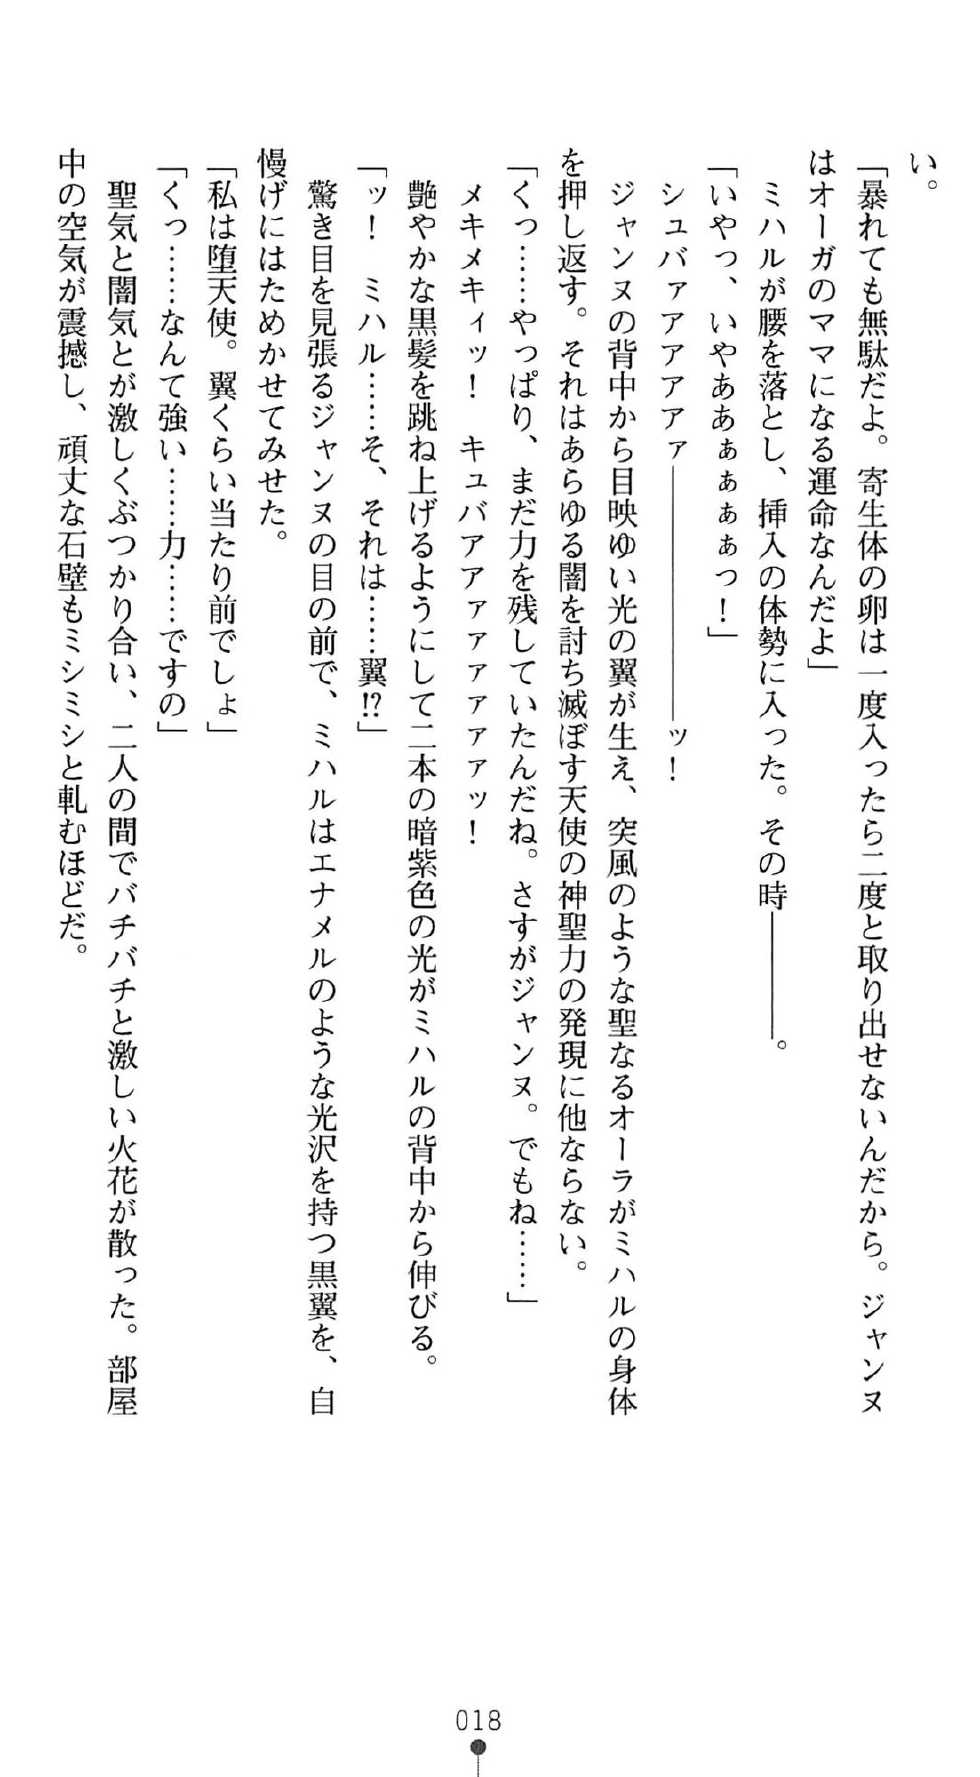 い。
「暴れても無駄だよ。寄生体の卵は一度入ったら二度と取り出せないんだから。ジャンヌ
はオーガのママになる運命なんだよ」
　ミハルが腰を落とし、挿入の体勢に入った。その時――――。
「いやっ、いやああぁぁぁぁっ！」
　シュバァアアアァ――――――――ッ！
　ジャンヌの背中から目映ゆい光の翼が生え、突風のような聖なるオーラがミハルの身体
を押し返す。それはあらゆる闇を討ち滅ぼす天使の神聖力の発現に他ならない。
「くっ……やっぱり、まだ力を残していたんだね。さすがジャンヌ。でもね……」
　メキメキィッ！　キュバアアァァァァァァッ！
　艶やかな黒髪を跳ね上げるようにして二本の暗紫色の光がミハルの背中から伸びる。
「ッ！　ミハル……そ、それは……翼!?」
　驚き目を見張るジャンヌの目の前で、ミハルはエナメルのような光沢を持つ黒翼を、自
慢げにはためかせてみせた。
「私は堕天使。翼くらい当たり前でしょ」
「くっ……なんて強い……力……ですの」
　聖気と闇気とが激しくぶつかり合い、二人の間でバチバチと激しい火花が散った。部屋
中の空気が震撼し、頑丈な石壁もミシミシと軋むほどだ。
018